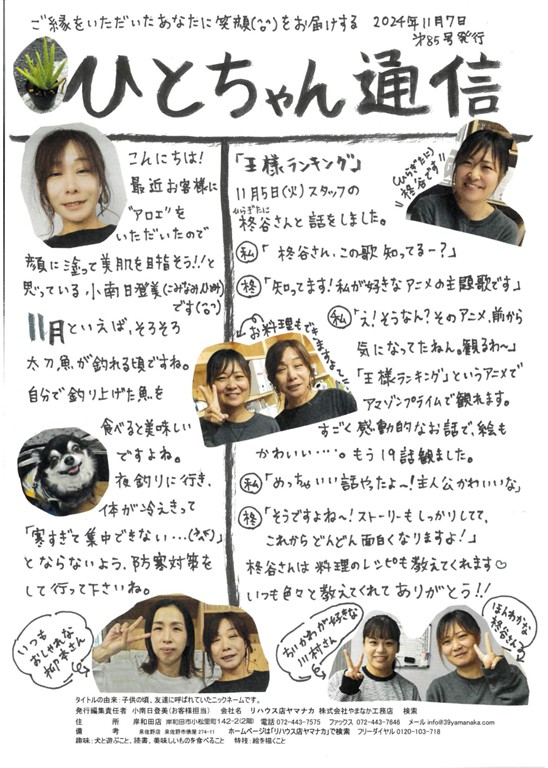 ご縁をいただいたあなたに笑顔(^o^)をお届けする
2024年11月7日
第85号発行
ひとちゃん通信
こんにちは!
最近お客様に
"アロエ"を
いただいたので
顔に塗って美肌を目指そう!!と
思っている、小南日登美(こみなみひとみ)
です(^o^)
11月といえば、そろそろ
太刀魚が釣れる頃ですね。
自分で釣り上げた魚を
食べると美味しい
ですよね。
夜釣りに行き、
体が冷えきって
「寒すぎて集中できない…(泣)」
とならないよう、防寒対策を
して行って下さいね。
いつも
おしゃれな
柳本さん
「王様ランキング」
11月5日(火)スタッフの
ひらぎたに
柊谷さんと話をしました。
(ひらぎたに)
柊谷です
私「柊谷さん、この歌知ってるー?」
柊「知ってます!私が好きなアニメの主題歌です」
私「え!そうなん?そのアニメ、前から
気になってたねん。観るわ〜」
お料理もできますよー
「王様ランキング」というアニメで
アマゾンプライムで観れます。
すごく感動的なお話で、絵も
かわいい…。もう19話観ました。
私「めっちゃいい話やったよ〜!主人公かわいいな」
柊「そうですよね〜!ストーリーもしっかりしてて、
これからどんどん面白くなりますよ!」
柊谷さんは料理のレシピも教えてくれます♡
いつも色々と教えてくれてありがとう!!
ちいかわが好きな
川村さん
ほんわかな
柊谷さん
タイトルの由来:子供の頃、友達に呼ばれていたニックネームです。
発行編集責任者 小南日登美(お客様担当) 会社名 リハウス店ヤマナカ 株式会社やまなか工務店 検索
住 所 岸和田店 岸和田市小松里町142-2(2階) 電話 072-443-7575 ファックス 072-443-7646 メール info@39yamanaka.com
備 考 泉佐野店 泉佐野市俵屋274-11 ホームページは「リハウス店ヤマナカ」で検索 フリーダイヤル 0120-103-718
趣味:犬と遊ぶこと、読書、美味しいものを食べること 特技:絵を描くこと